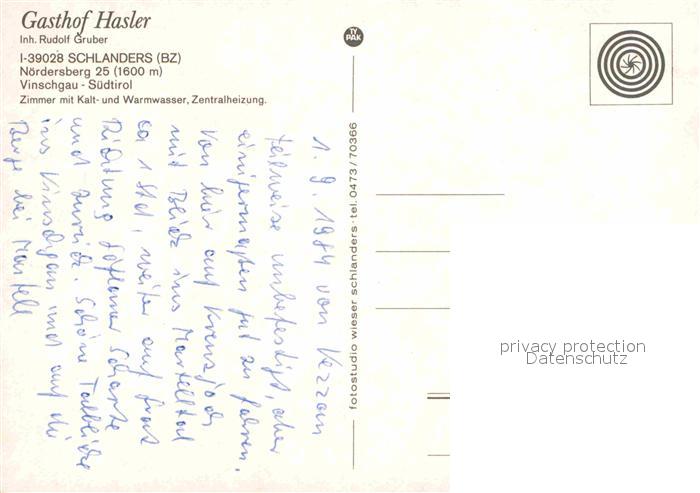 Gasthof Hasler
Inh. Rudolf Gruber
I-39028 SCHLANDERS (BZ)
Nördersberg 25 (1600 m)
Vinschgau - Südtirol
Zimmer mit Kalt- und Warmwasser, Zentralheizung.
TY
PAK
fotostudio wieser schlanders · tel. 0473/70366
1. 9. 1984 von Vezzan
teilweise unbefestigt, aber
einigermaßen gut zu fahren.
Von hier auf Kreuzjoch
mit Blick ins Martelltal
ca 1 Std, weiter auf
Richtung Göflaner Scharte
und zurück. Schöne Talblicke
ins Vinschgau und auf die
Berge bei Martell
privacy protection
Datenschutz